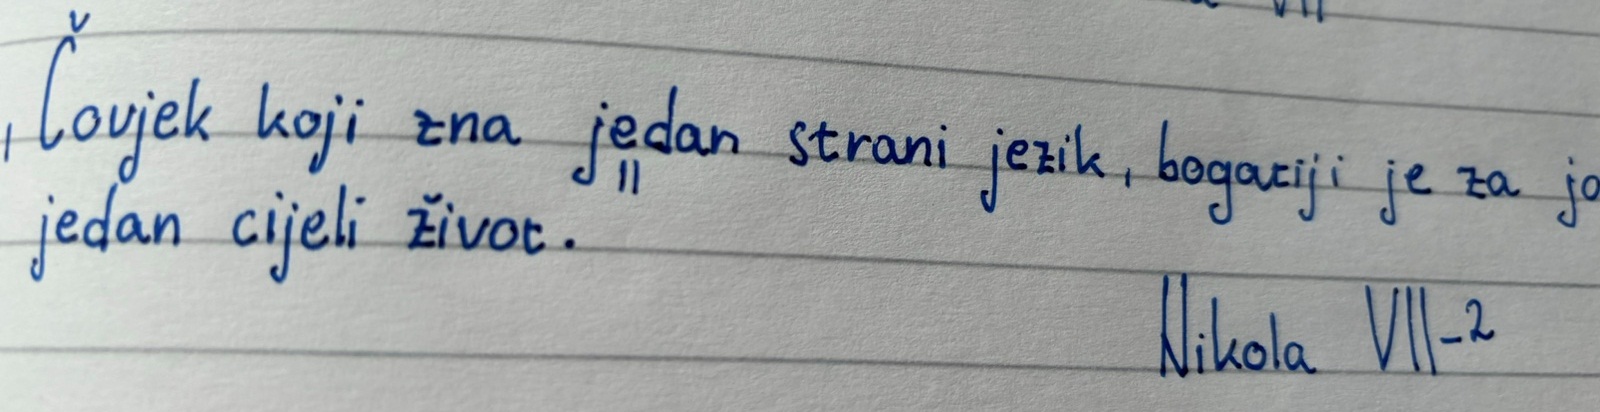 „Čovjek koji zna jedan strani jezik, bogatiji je za jo
jedan cijeli život.
Nikola VII-2